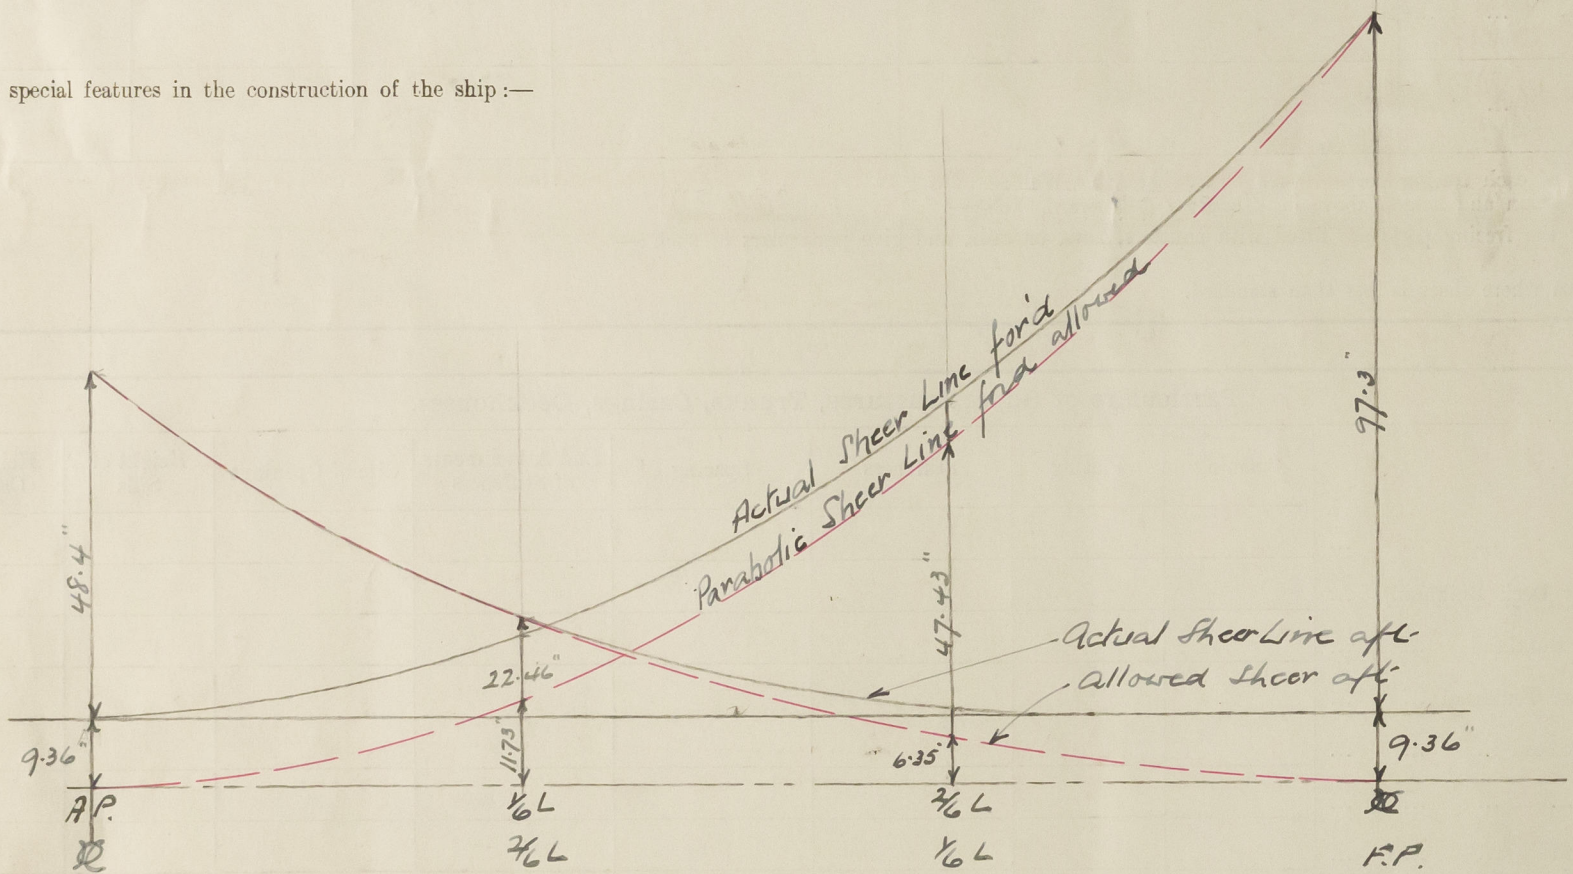 special features in the construction of the ship :—
Actual Sheer Line for'd
Parabolic Sheer Line for'd allowed
97.3"
48.4"
47.43"
Actual Sheer Line aft
allowed Sheer aft
22.46"
9.36"
11.73"
6.35
9.36"
A P.
1/6 L
2/6 L
2/6 L
1/6 L
F.P.